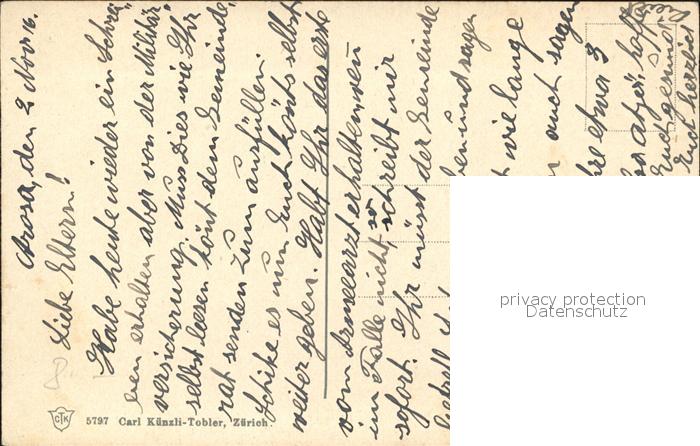 Arosa, den 2 Nov 16.
Liebe Eltern!
Habe heute wieder ein Schrei-
ben erhalten aber von der Militär-
versicherung. Muss Dies wie Ihr
selbst lesen könt dem Gemeinde
rat senden zum ausfüllen
Schike es nun Euch könts selbst
weiter geben. Habt Ihr das erste
vom Armeearzt erhalten wen
im Falle nicht so schreibt mir
sofort. Ihr müsst der Gemeinde
und sagen
wie lange
auch sagen
etwa 3
Euch gesund
5797 Carl Künzli-Tobler, Zürich.
CTK
privacy protection
Datenschutz